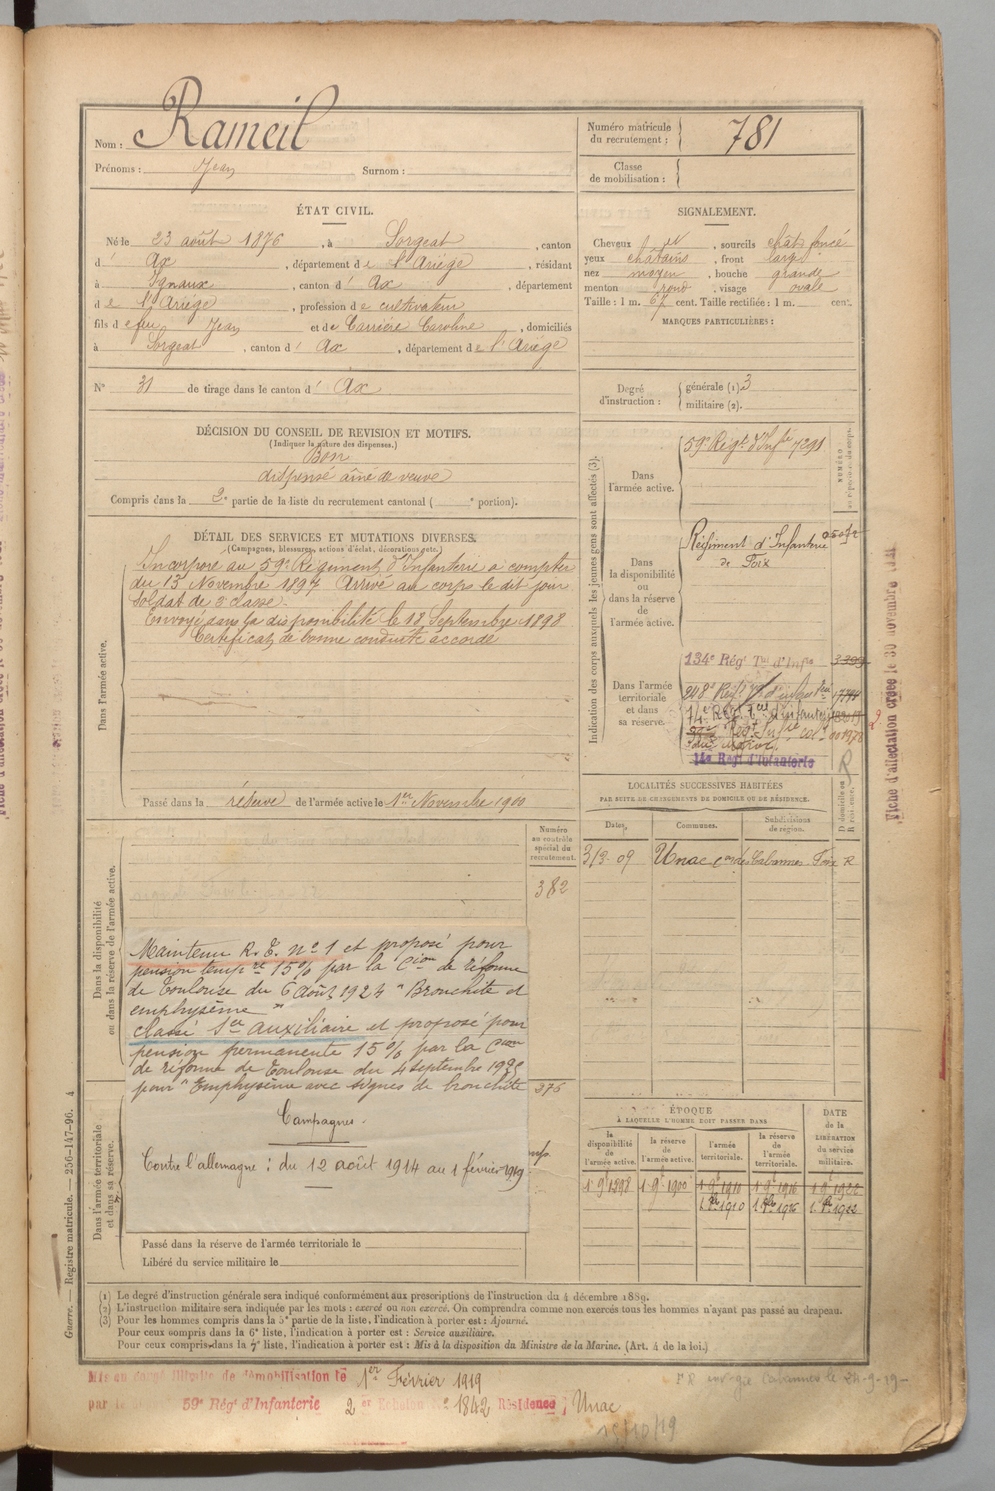 Nom : Rameil
Prénoms : Jean Surnom :
Numéro matricule du recrutement : 781
Classe de mobilisation :
ÉTAT CIVIL.
Né le 23 août 1876, à Sorgeat, canton
d' Ax, département de l'Ariège, résidant
à Ignaux, canton d' Ax, département
de l'Ariège, profession de cultivateur
fils de feu Jean et de Carrière Caroline, domiciliés
à Sorgeat, canton d' Ax, département de l'Ariège
N° 31 de tirage dans le canton d' Ax
SIGNALEMENT.
Cheveux et, sourcils châts foncé
yeux châtains, front large
nez moyen, bouche grande
menton rond, visage ovale
Taille : 1 m. 67 cent. Taille rectifiée : 1 m. cent.
MARQUES PARTICULIÈRES :
Degré d'instruction : générale (1) 3
militaire (2).
DÉCISION DU CONSEIL DE REVISION ET MOTIFS.
(Indiquer la nature des dispenses.)
Bon
dispensé aîné de veuve
Compris dans la 2e partie de la liste du recrutement cantonal ( e portion).
DÉTAIL DES SERVICES ET MUTATIONS DIVERSES.
(Campagnes, blessures, actions d'éclat, décorations, etc.)
Dans l'armée active.
Incorporé au 59e Régiment d'Infanterie à compter
du 13 Novembre 1897 Arrivé au corps le dit jour
soldat de 2e classe.
Envoyé dans la disponibilité le 18 Septembre 1898
Certificat de bonne conduite accordé
Passé dans la réserve de l'armée active le 1er Novembre 1900
Indication des corps auxquels les jeunes gens sont affectés (3).
NUMÉRO
Dans l'armée active.
59e Régt d'Infie 7291
Dans la disponibilité ou dans la réserve de l'armée active.
Régiment d'Infanterie
de Foix
Dans l'armée territoriale et dans sa réserve.
134e Régt Tal d'Infie 3399
248e 17744
14e Régt
14e Régt d'Infanterie
Fiche d'affectation créée le 30 novembre
LOCALITÉS SUCCESSIVES HABITÉES
PAR SUITE DE CHANGEMENTS DE DOMICILE OU DE RÉSIDENCE.
Dates. Communes. Subdivisions de région. D domicile ou R résidence.
3/3-09 Unac con des Cabannes Foix R
Dans la disponibilité ou dans la réserve de l'armée active.
Numéro au contrôle spécial du recrutement.
382
Maintenu R.E. n° 1 et proposé pour
pension tempre 15% par la Cion de réforme
de Toulouse du 6 Août 1924 "Bronchite et
emphysème"
classé Sce auxiliaire et proposé pour
pension permanente 15% par la Cion
de réforme de Toulouse du 4 septembre
pour "Emphysème avec signes de bronchite
276
Campagnes.
Contre l'allemagne : du 12 août 1914 au 1 février 1919
Dans l'armée territoriale et dans sa réserve.
Passé dans la réserve de l'armée territoriale le
Libéré du service militaire le
ÉPOQUE
À LAQUELLE L'HOMME DOIT PASSER DANS
DATE de la LIBÉRATION du service militaire.
la disponibilité de l'armée active. la réserve de l'armée active. l'armée territoriale. la réserve de l'armée territoriale.
1 9e 1898 1 9e 1900 1 9e 1910 1 9e 1916 1 9e 1922
(1) Le degré d'instruction générale sera indiqué conformément aux prescriptions de l'instruction du 4 décembre 1889.
(2) L'instruction militaire sera indiquée par les mots : exercé ou non exercé. On comprendra comme non exercés tous les hommes n'ayant pas passé au drapeau.
(3) Pour les hommes compris dans la 5e partie de la liste, l'indication à porter est : Ajourné.
Pour ceux compris dans la 6e liste, l'indication à porter est : Service auxiliaire.
Pour ceux compris dans la 7e liste, l'indication à porter est : Mis à la disposition du Ministre de la Marine. (Art. 4 de la loi.)
Guerre. — Registre matricule. — 256-147-96. 4
Mis en congé illimité de démobilisation le 1er Février 1919
par le dépôt 59e Régt d'Infanterie 2e Echelon N° 1842 Résidence ; Unac
Cabannes le 24-9-19-
15/10/19